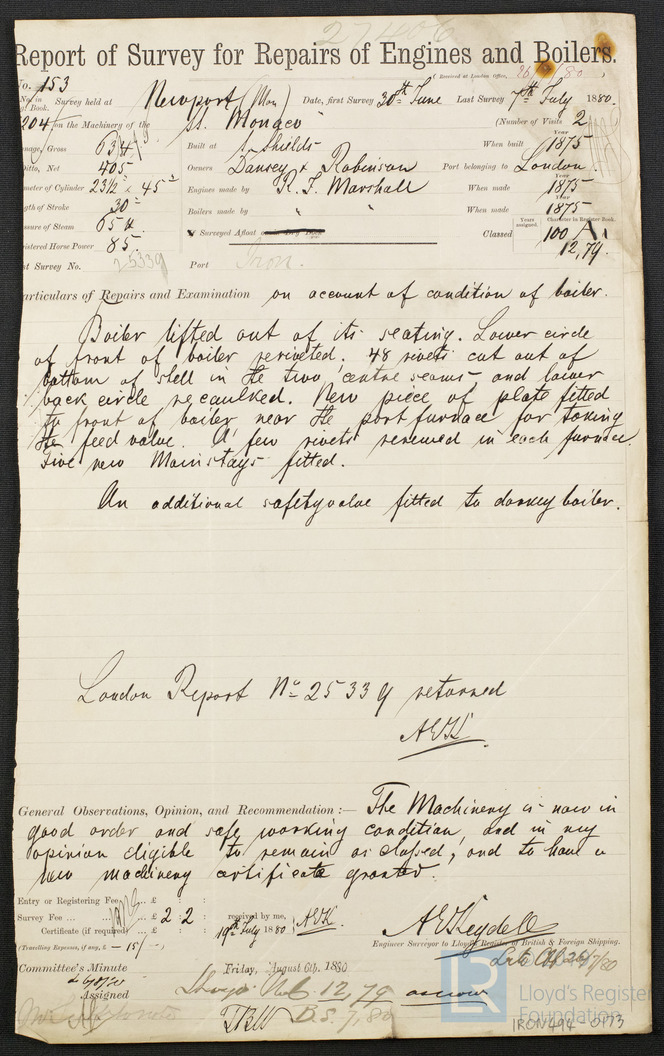 27406
Report of Survey for Repairs of Engines and Boilers.
(Received at London Office, 26/7/80)
No. 153
No. in Survey held at Newport (Mon) Date, first Survey 30th June Last Survey 7th July 1880.
of Book.
204 on the Machinery of the SS. Monaco (Number of Visits 2
nage, Gross 634 Built at So. Shields When built Year 1875
Ditto, Net 405 Owners Dansey & Robinson Port belonging to London.
meter of Cylinder 23½" × 45" Engines made by R. F. Marshall When made Year 1875
gth of Stroke 30" Boilers made by " " When made Year 1875
ssure of Steam 65 lb. Surveyed Afloat or in Dry Dock Classed Years assigned. 100 Character in Register Book. A1
istered Horse Power 85. 12,79.
st Survey No. 25339 Port Iron.
articulars of Repairs and Examination on account of condition of boiler.
Boiler lifted out of its seating. Lower circle
of front of boiler reriveted. 48 rivets cut out of
bottom of shell in the two centre seams and lower
back circle recaulked. New piece of plate fitted
to front of boiler near the port furnace for taking
the feed valve. A few rivets renewed in each furnace.
Five new Mainstays fitted.
An additional safety valve fitted to donkey boiler.
London Report No. 25339 returned
AEK.
General Observations, Opinion, and Recommendation:— The Machinery is now in
good order and safe working condition, and in my
opinion eligible to remain as classed, and to have a
new machinery certificate granted.
Entry or Registering Fee ... £ : :
Survey Fee ... ... £ 2 : 2 : received by me,
Certificate (if required) ... £ : : 19th July 1880 AEK.
(Travelling Expenses, if any, £ — 15/— )
A E Keydell
Engineer Surveyor to Lloyd's Register of British & Foreign Shipping.
Committee's Minute Friday, August 6th. 1880
Assigned
12,79 as now
B.S. 7,80
LR Lloyd's Register
Foundation
IRON494-0173